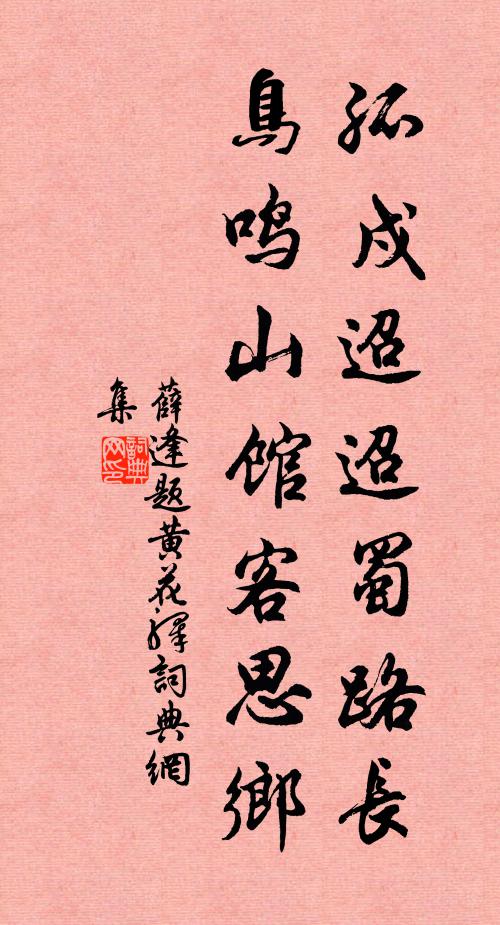 孤戍迢迢蜀路長
鳥鳴山館客思鄉
薛逢題黄花驛詞典網
集
詞典網印